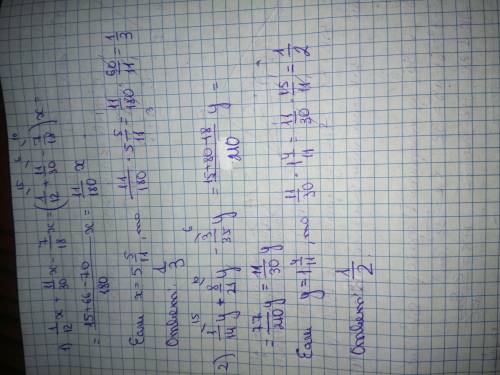 1) 1/12 x + 11/30 x - 7/18 x = (1/12 + 11/30 - 7/18) x =
= 15+66-70/180 x = 11/180 x
Если x = 5 5/11, то 11/180 · 5 5/11 = 11/180 · 60/11 = 1/3
Ответ: 1/3
2) 1/14 y + 8/21 y - 3/35 y = 15+80-18/210 y =
= 77/210 y = 11/30 y
Если y = 1 4/11, то 11/30 · 1 4/11 = 11/30 · 15/11 = 1/2
Ответ: 1/2.